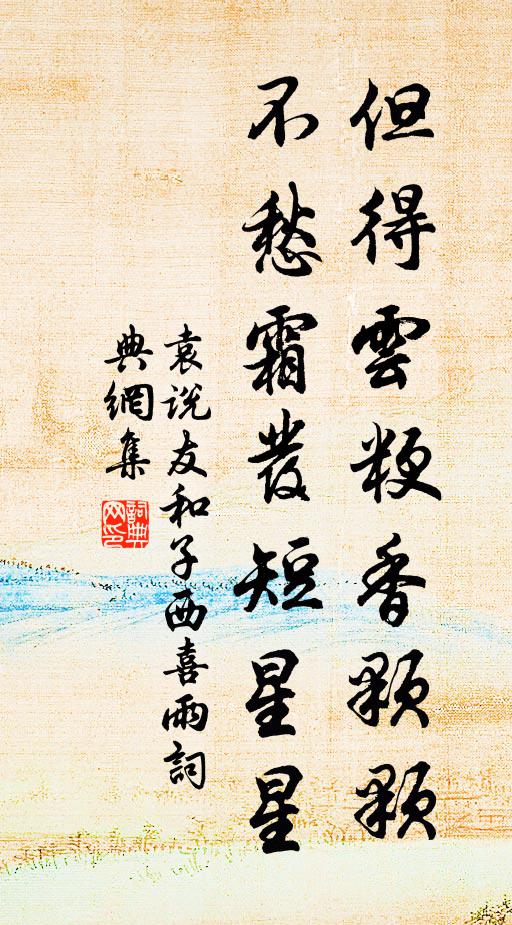 但得雲粳香顆顆
不愁霜髮短星星
袁說友和子西喜雨詞
典網集
詞典
网印